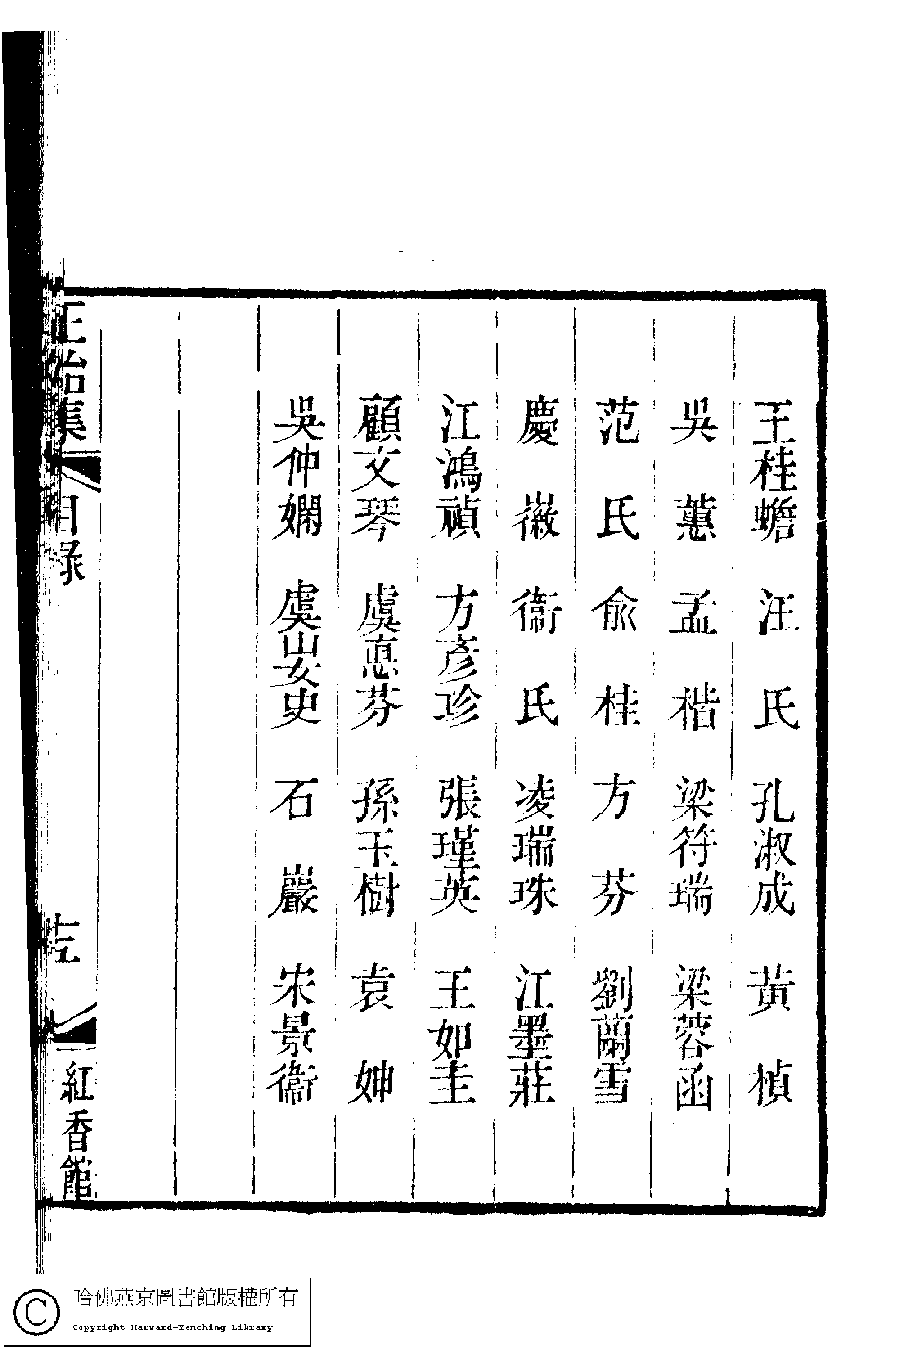 王桂蟾　汪　氏　孔淑成　黃　楨
吳　蕙　孟　楷　梁符瑞　梁蓉函
范　氏　俞　桂　方　芬　劉蘭雪
慶　徽　衞　氏　凌瑞珠　江墨莊
江鴻禎　方彥珍　張瑾英　王如圭
顧文琴　虞惠芬　孫玉樹　袁　妽
吳仲嫻　虞山女史　石　巖　宋景衞
正始集　目錄　紅香館
哈佛燕京圖書館版權所有
Copyright Harvard-Yenching Library